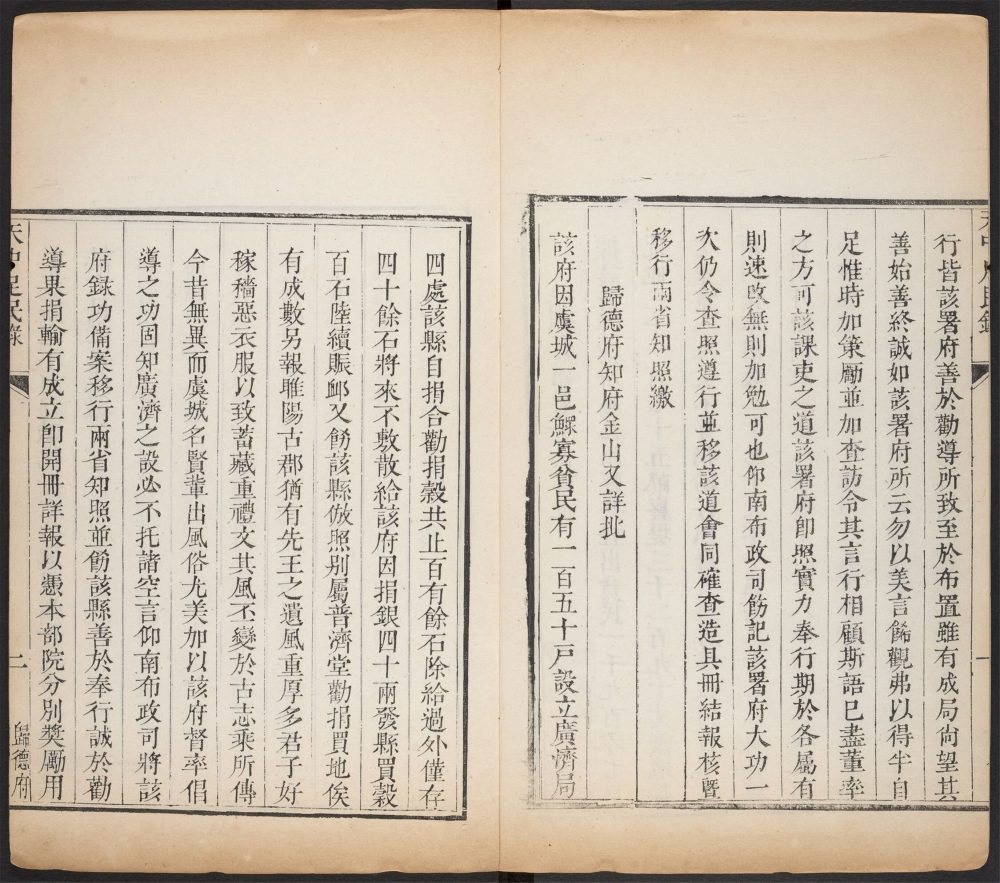 行皆該署府善於勸導所致至於布置雖有成局尚望其
善始善終誠如該署府所云勿以美言餙觀弗以得半自
足惟時加策勵並加查訪令其言行相顧斯語已盡董率
之方可該課吏之道該署府卽照實力奉行期於各屬有
則速改無則加勉可也仰南布政司飭記該署府大功一
次仍令查照遵行並移該道會同確查造具冊結報核暨
移行兩省知照繳
歸德府知府金山又詳批
該府因虞城一邑鰥寡貧民有一百五十戸設立廣濟局
四處該縣自捐合勸捐穀共止百有餘石除給過外僅存
四十餘石將來不敷散給該府因捐銀四十兩發縣買穀
百石陸續賑䘏又飭該縣倣照别屬普濟堂勸捐買地俟
有成數另報睢陽古郡猶有先王之遺風重厚多君子好
稼穡惡衣服以致蓄藏重禮文其風丕變於古志乘所傳
今昔無異而虞城名賢輩出風俗尤美加以該府督率倡
導之功固知廣濟之設必不托諸空言仰南布政司將該
府録功備案移行兩省知照並飭該縣善於奉行誠於勸
導果捐輸有成立卽開冊詳報以憑本部院分別奬勵用
二
歸德府